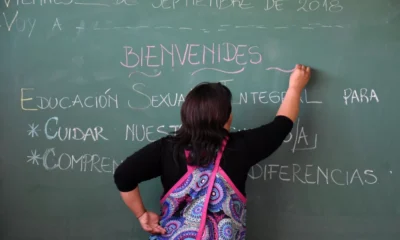 DE SEPTIEMBRE DE 2018
VOY A
BIENVENIDES
EDUCACIÓN SEXUAL INTEGRAL PARA
* CUIDAR
* DIFERENCIAS